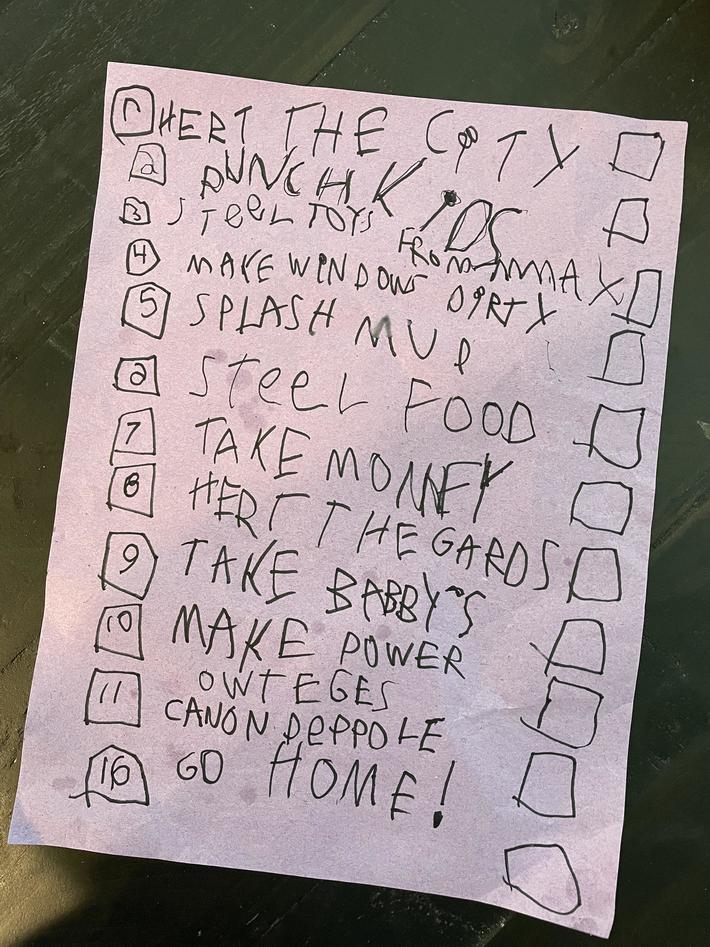 1 HERT THE CITY
2 PUNCH KIDS
3 STEEL TOYS FROM MAX
4 MAKE WINDOWS DIRTY
5 SPLASH MUD
STEEL FOOD
7 TAKE MONNEY
8 HERT THE GARDS
9 TAKE BABBY'S
10 MAKE POWER
OWTEGES
11 CANON PEPPOLE
GO HOME!